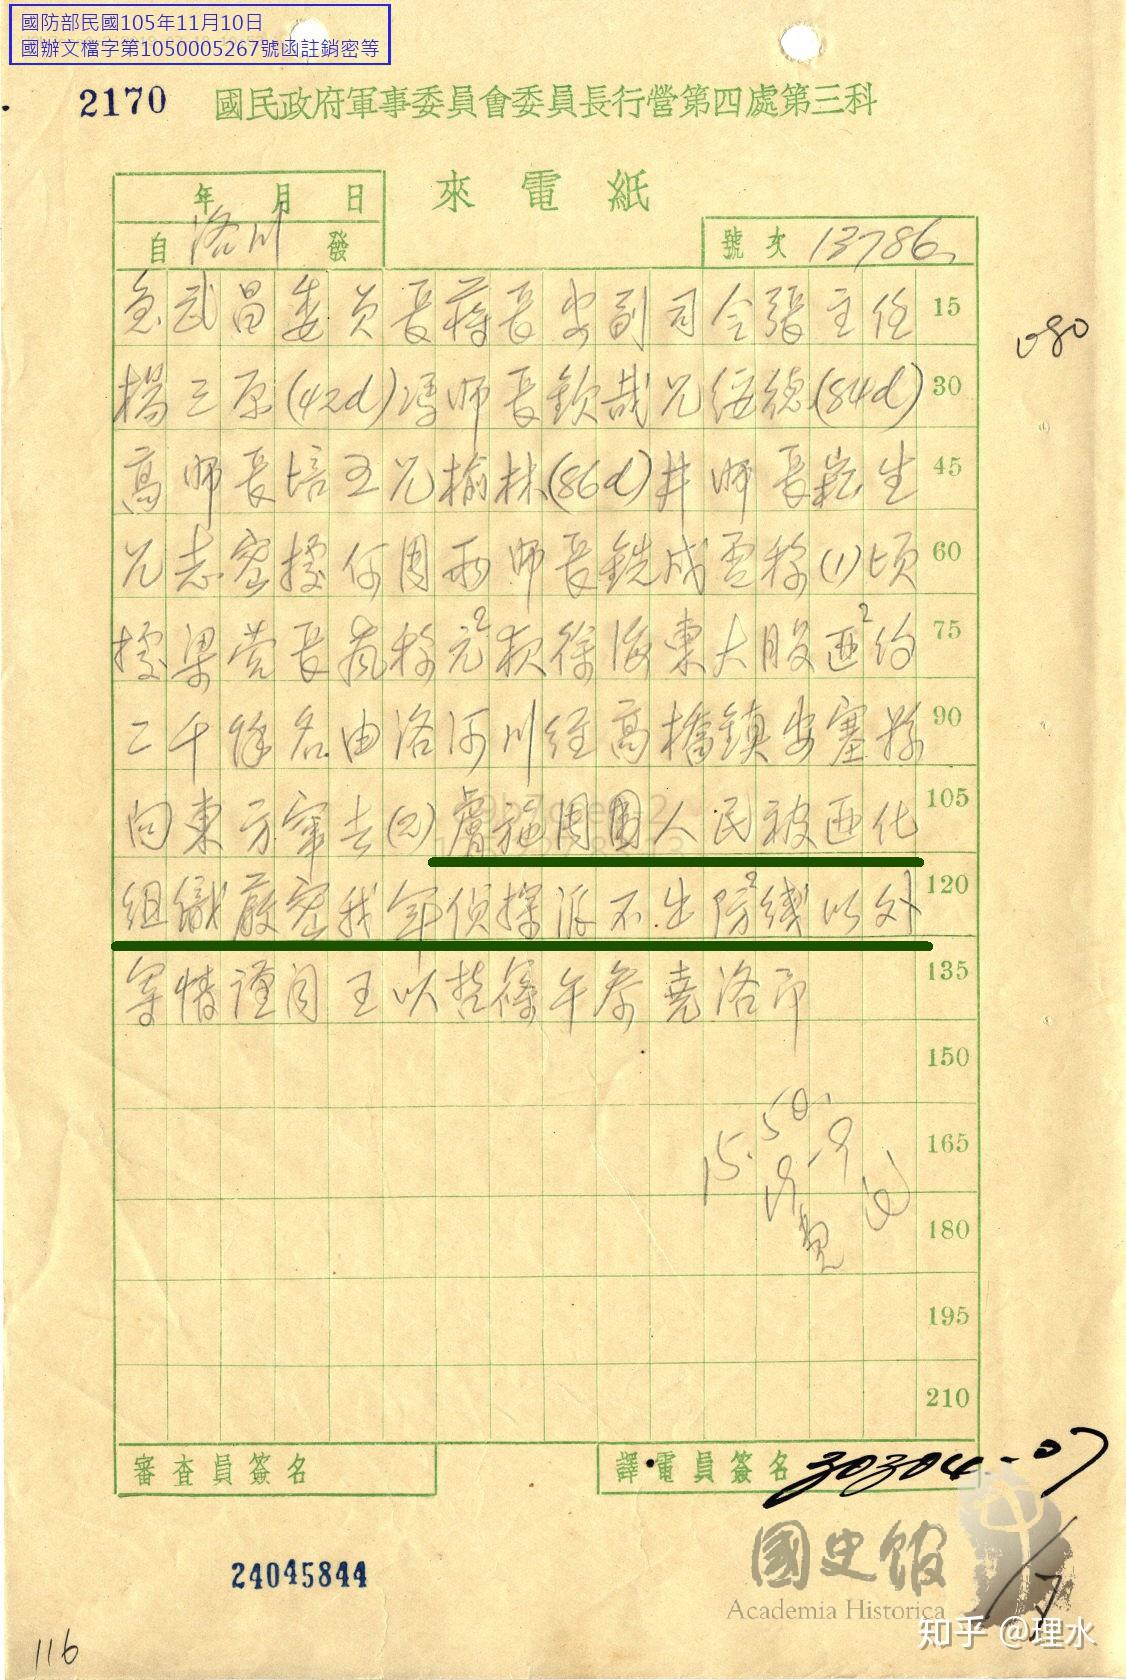 國防部民國105年11月10日
國辦文檔字第1050005267號函註銷密等
2170 國民政府軍事委員會委員長行營第四處第三科
來電紙
年 月 日
自 洛川 發
號次 13786
急武昌委員長蔣長安副司令張主任 15
080
楊三原(42d)馮師長欽哉兄綏德(84d) 30
高師長培五兄榆林(86d)井師長崧生 45
兄志密據何周兩師長銑成電称(1)頃 60
據梁營長嵐称元2夜徐海東大股匪2約 75
二千餘名由洛河川经高橋鎮安塞縣 90
向東方竄去(2)膚施周圍人民被匪化 105
組織嚴密我軍偵探派不出防2线以外 120
等情謹聞王以哲篠午参堯洛印 135
150
15.50.
165
180
195
210
審查員簽名
譯電員簽名
30304-07
國史館
Academia Historica
24045844
116
知乎 @理水